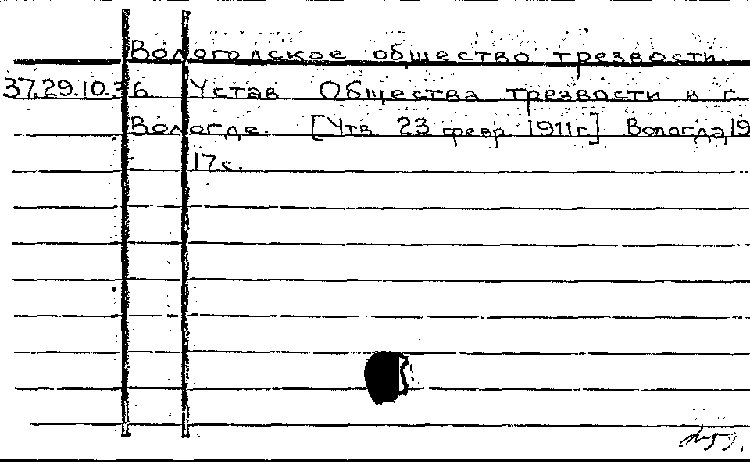 Вологодское общество трезвости.
37.29.10.36 Устав Общества трезвости в г.
Вологде. [Утв. 23 февр. 1911г.] Вологда, 19
17с.